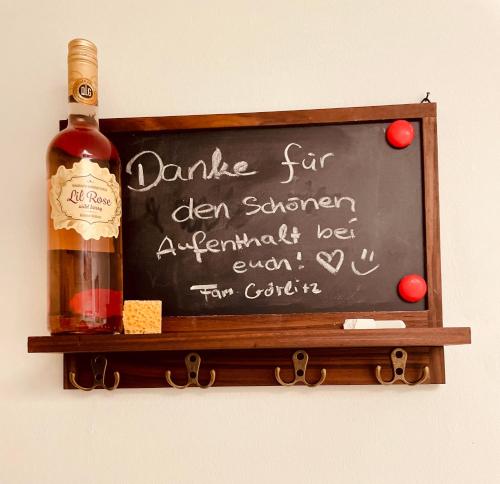 DLG
Lil Rose
wild berry
Danke für
den Schönen
Aufenthalt bei
euch!
Fam. Görlitz